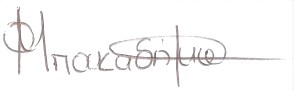 ΦΜπακαδήμα